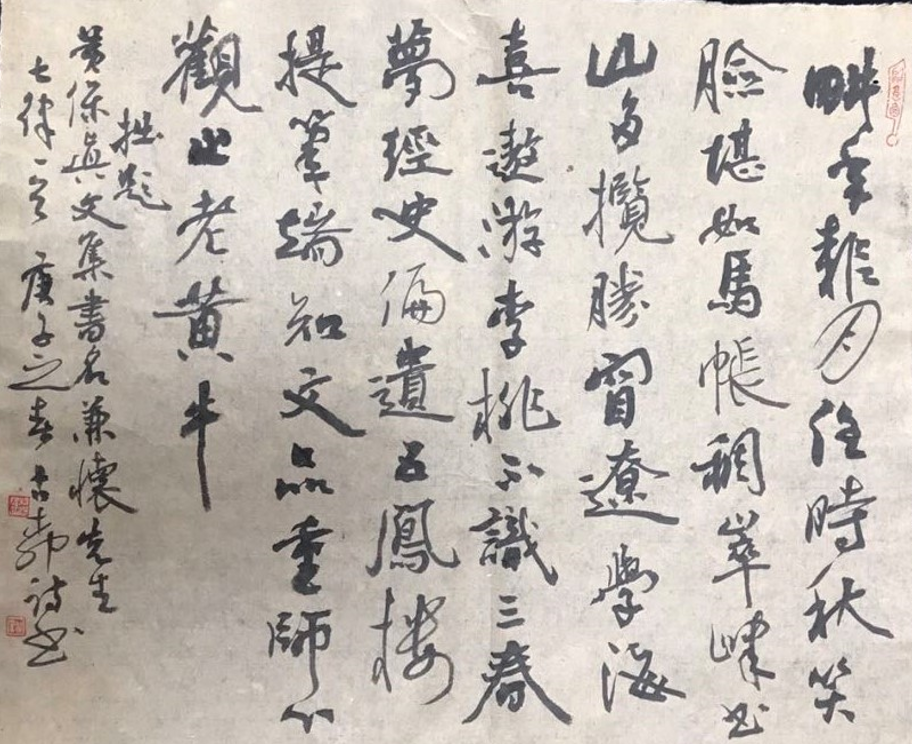 畊年耤月任時秋笑
臉堪如馬帳稠崒嵂書
山多攬勝窅遼學海
喜遨游李桃不識三春
夢經史偏遺五鳳樓
提筆端知文品重師心
觀止老黃牛
拙題
黃保真文集書名兼懷先生
七律一首 庚子之春 古郭詩書